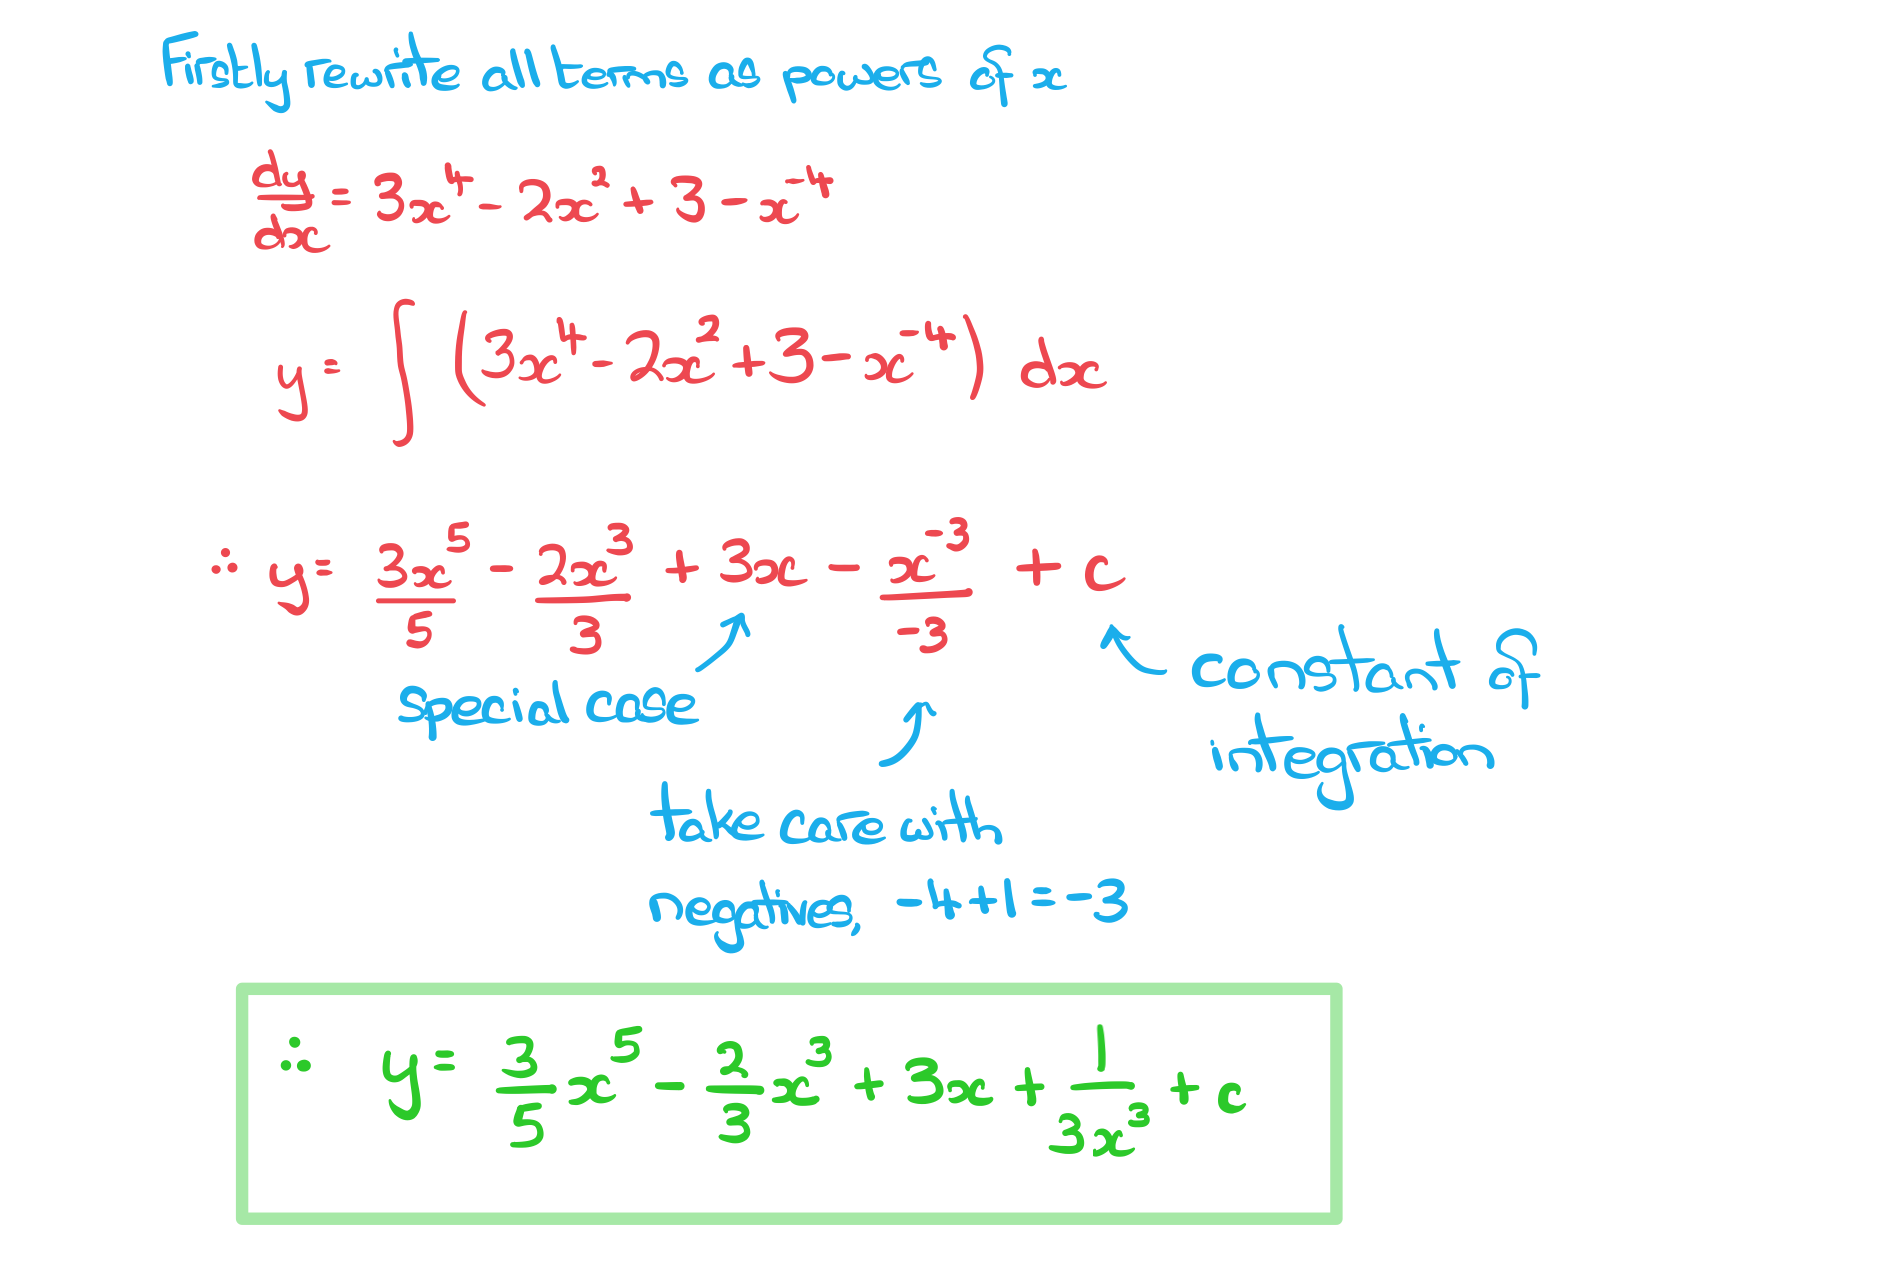 Firstly rewrite all terms as powers of x
dy/dx = 3x⁴ - 2x² + 3 - x⁻⁴
y = ∫ (3x⁴ - 2x² + 3 - x⁻⁴) dx
∴ y = 3x⁵/5 - 2x³/3 + 3x - x⁻³/-3 + c
special case
constant of
integration
take care with
negatives, -4+1=-3
∴ y = 3/5 x⁵ - 2/3 x³ + 3x + 1/3x³ + c